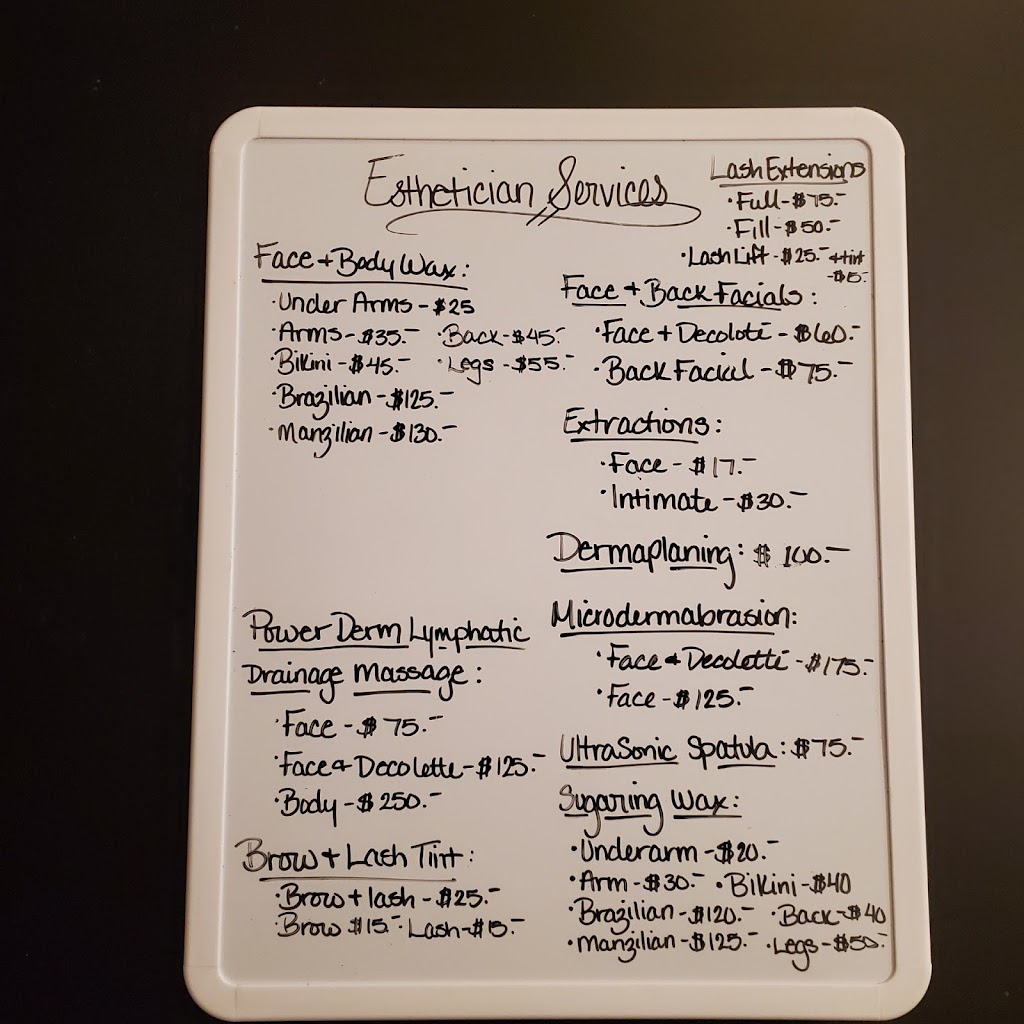 Esthetician Services
Lash Extensions
·Full-$75.-
·Fill-$50.-
·Lash Lift-$25.- +tint
-$15.-
Face + Body Wax:
·Under Arms-$25
·Arms-$35.- ·Back-$45.-
·Bikini-$45.- ·Legs-$55.-
·Brazilian-$125.-
·Manzilian-$130.-
Power Derm Lymphatic
Drainage Massage:
·Face-$75.-
·Face & Decolette-$125.-
·Body-$250.-
Brow + Lash Tint:
·Brow + lash-$25.-
·Brow $15.- ·Lash-$15.-
Face + Back Facials:
·Face + Decoloti-$60.-
·Back Facial-$75.-
Extractions:
·Face-$17.-
·Intimate-$30.-
Dermaplaning: $100.-
Microdermabrasion:
·Face & Decoletti-$175.-
·Face-$125.-
UltraSonic Spatula: $75.-
Sugaring Wax:
·Underarm-$20.-
·Arm-$30.- ·Bikini-$40
·Brazilian-$120.- ·Back-$40
·Manzilian-$125.- ·Legs-$50.-